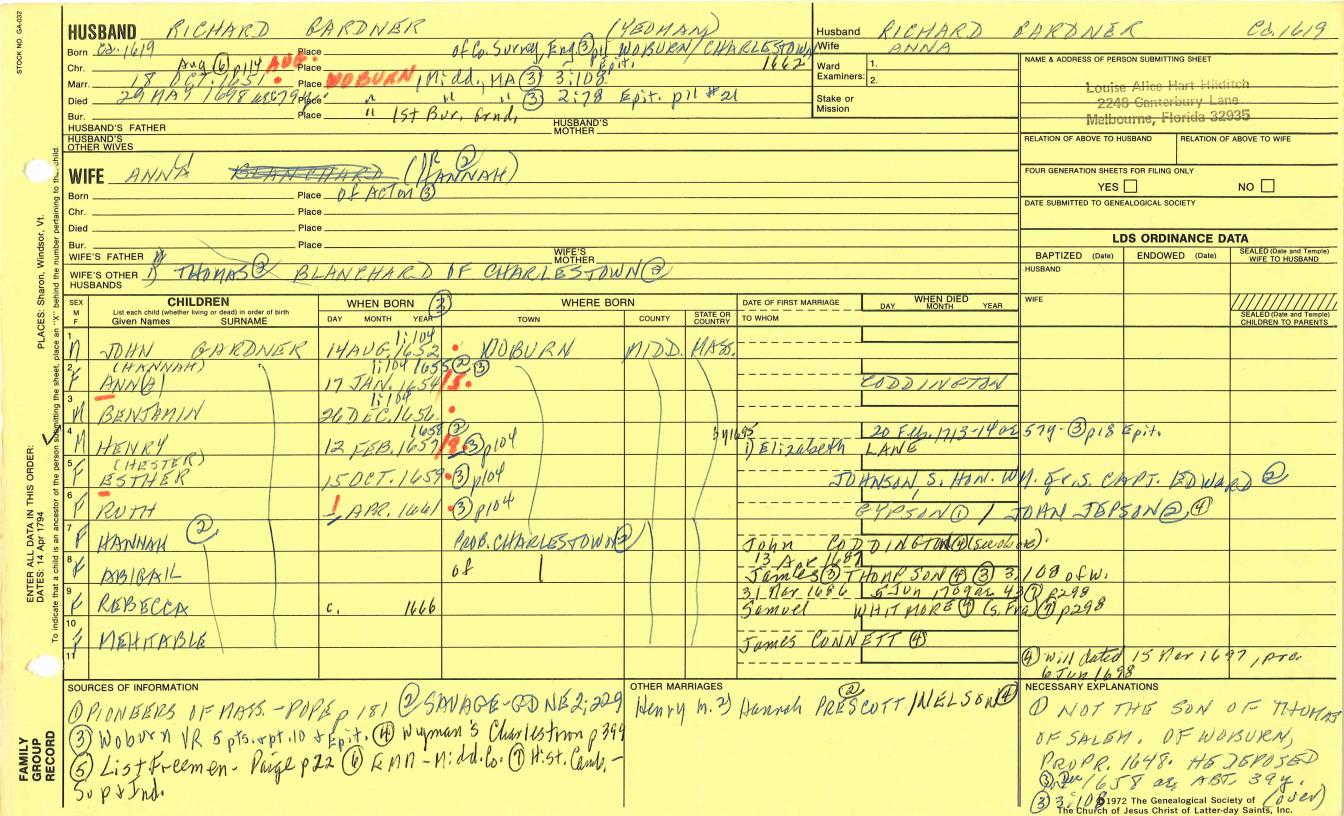 STOCK NO. GA-032
HUSBAND RICHARD GARDNER (YEOMAN)
Born Ca. 1619 Place of Co. Surrey, Eng. ③ p11 WOBURN/CHARLESTOWN
Chr. Aug ⑥ p114 AUG. Place Epit. 1662
Marr. 18 OCT. 1651 Place WOBURN, Midd., MA ③ 3:108
Died 29 MAY 1698 ae 79y Place " " " ③ 2:78 Epit. p11 #21
Bur. Place " 1st Bur. Grnd.
HUSBAND'S FATHER HUSBAND'S MOTHER
HUSBAND'S OTHER WIVES
WIFE ANNA BLANCHARD (or HANNAH) ②
Born Place of ACTON ③
Chr. Place
Died Place
Bur. Place
WIFE'S FATHER WIFE'S MOTHER
WIFE'S OTHER HUSBANDS 1) THOMAS ② BLANCHARD OF CHARLESTOWN ②
Husband RICHARD GARDNER Ca. 1619
Wife ANNA
Ward Examiners: 1.
2.
Stake or Mission
NAME & ADDRESS OF PERSON SUBMITTING SHEET
Louise Alice Hart Hilditch
2248 Canterbury Lane
Melbourne, Florida 32935
RELATION OF ABOVE TO HUSBAND RELATION OF ABOVE TO WIFE
FOUR GENERATION SHEETS FOR FILING ONLY
YES NO
DATE SUBMITTED TO GENEALOGICAL SOCIETY
LDS ORDINANCE DATA
BAPTIZED (Date) ENDOWED (Date) SEALED (Date and Temple) WIFE TO HUSBAND
HUSBAND
WIFE
SEALED (Date and Temple) CHILDREN TO PARENTS
SEX M F CHILDREN WHEN BORN ③ WHERE BORN DATE OF FIRST MARRIAGE WHEN DIED
List each child (whether living or dead) in order of birth
Given Names SURNAME DAY MONTH YEAR TOWN COUNTY STATE OR COUNTRY TO WHOM DAY MONTH YEAR
1:104
1 M JOHN GARDNER 14 AUG. 1652 WOBURN MIDD. MASS.
(HANNAH) 1:104 1655 ② ③
2 F ANN(A) 17 JAN. 1654/5. CODDINGTON
1:104
3 M BENJAMIN 26 DEC. 1656
1658 ② 1695 20 Feb. 1713-14 ae 57y- ③ p18 Epit.
4 M HENRY 12 FEB. 1657/8 ③ p104 1) Elizabeth LANE
(HESTER)
5 F ESTHER 15 OCT. 1659 ③ p104 JOHNSON, S. HON. WM. Gr. S. CAPT. EDWARD ②
6 F RUTH 1 APR. 1661 ③ p104 GYPSON ① / JOHN JEPSON ②, ④
7 F HANNAH ② PROB. CHARLESTOWN ② John CODDINGTON
13 Apr 1687
8 F ABIGAIL of James ③ THOMPSON ④ ③ 3:108 of W.
31 Mar 1686 5 Jun 1709 ae 43 ⑦ p298
9 F REBECCA c. 1666 Samuel WHITMORE ④ (s. Fra) ⑦ p298
10 F MEHITABLE James CONNETT ④
11
④ Will dated 15 Mar 1697, pro.
6 Jun 1698
SOURCES OF INFORMATION
① PIONEERS OF MASS. - POPE p 181 ② SAVAGE-GDNE 2:229
③ Woburn VR 5 pts. + pt. 10 + Epit. ④ Wyman's Charlestown p 399
⑤ List Freemen - Paige p22 ⑥ EMM - Midd. Co. ⑦ Hist. Camb. -
Sup & Ind.
OTHER MARRIAGES
Henry m. 2) Hannah PRESCOTT ② /NELSON ④
NECESSARY EXPLANATIONS
① NOT THE SON OF THOMAS
OF SALEM. OF WOBURN,
PROPR. 1648. HE DEPOSED
Dec/1658 ae ABT. 39y.
③ 3:108 (over)
©1972 The Genealogical Society of
The Church of Jesus Christ of Latter-day Saints, Inc.
PLACES: Sharon, Windsor, Vt.
To indicate that a child is an ancestor of the person submitting the sheet, place an "X" behind the number pertaining to the child.
ENTER ALL DATA IN THIS ORDER:
DATES: 14 Apr 1794
FAMILY
GROUP
RECORD